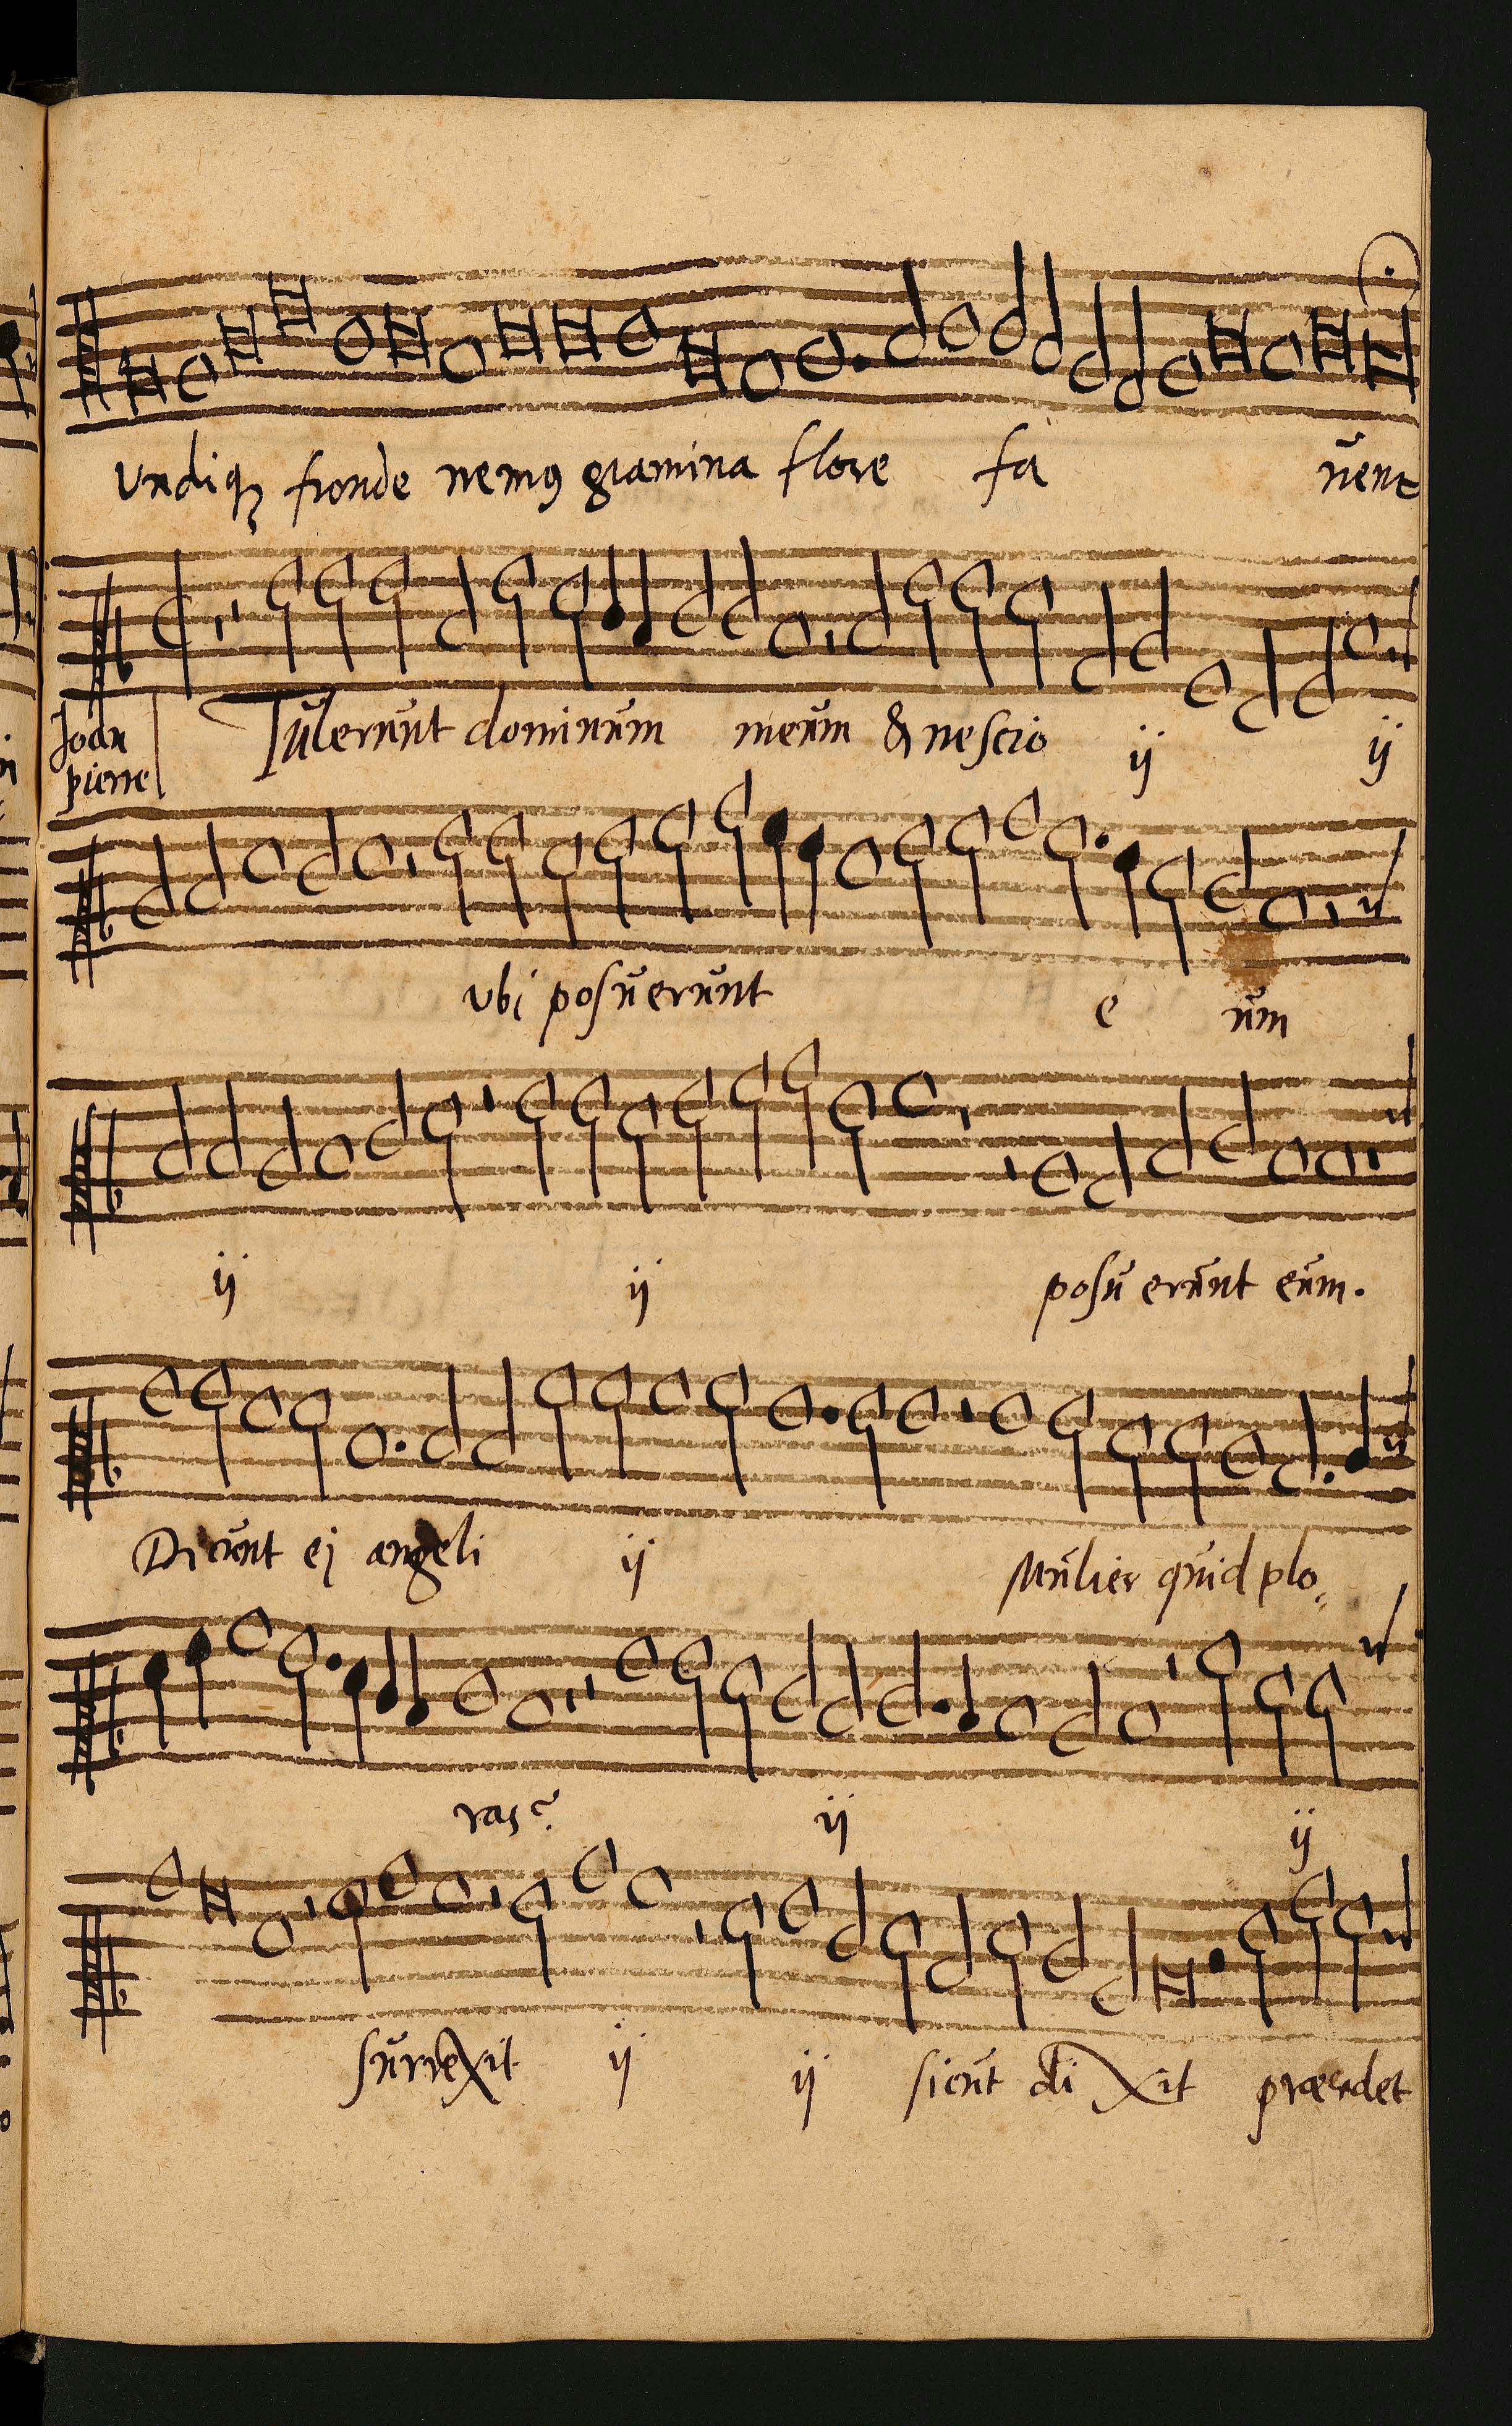 Undiqꝫ fronde nemꝯ gramina flore fa ŭent
Joan pierre
Tŭlerŭnt dominŭm meŭm & nescio ij ij
vbi posŭerŭnt e ŭm
ij ij posŭ erŭnt eŭm.
Dicŭnt ej angeli ij Mŭlier qŭid plo„
ras? ij ij
sŭrrexit ij ij sicŭt di xit præcedet